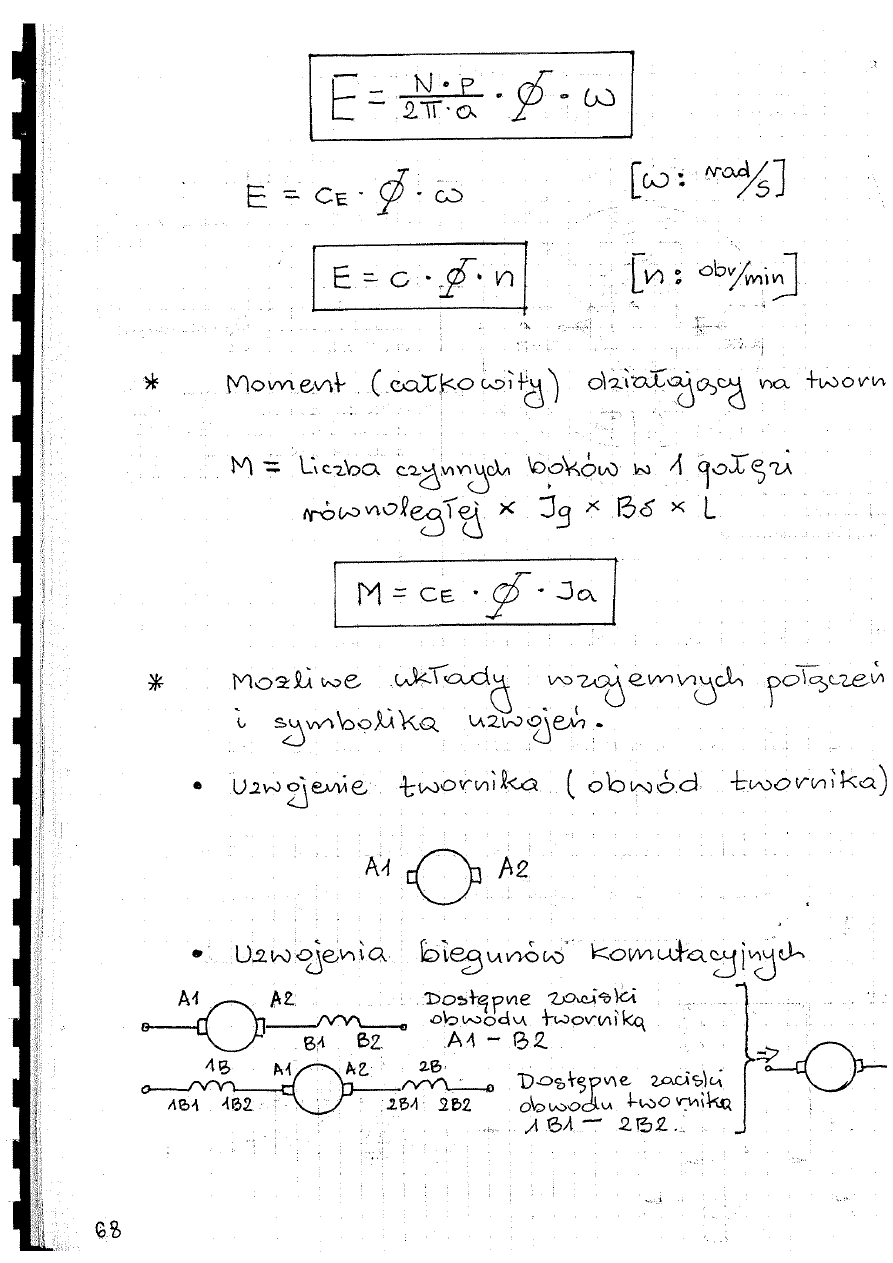 E = N·p / 2π·a · Φ · ω
E = CE · Φ · ω [ω: rad/s]
E = c · Φ · n [n: obr/min]
* Moment (całkowity) działający na tworn
M = Liczba czynnych boków w 1 gałęzi
równoległej × Ig × Bδ × L
M = CE · Φ · Ia
* Możliwe układy wzajemnych połączeń
i symbolika uzwojeń.
• Uzwojenie twornika (obwód twornika)
A1 A2
• Uzwojenia biegunów komutacyjnych
A1 A2 B1 B2
Dostępne zaciski
obwodu twornika
A1 – B2
1B A1 A2 2B
1B1 1B2 2B1 2B2
Dostępne zaciski
obwodu twornika
1B1 – 2B2.
⇒
68